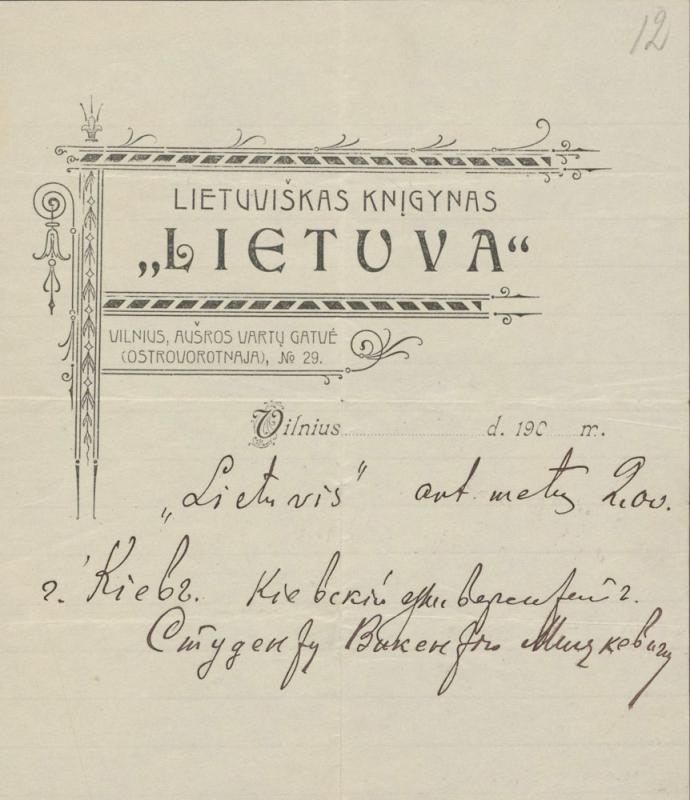 12
LIETUVIŠKAS KNĮGYNAS
„LIETUVA“
VILNIUS, AUŠROS VARTŲ GATVĖ
(OSTROVOROTNAJA), № 29.
Vilnius d. 190 m.
„Lietuvis“ ant metų 2.00.
г. Кіевъ. Кіевскій университетъ.
Студенту Викентію Мицкевичу